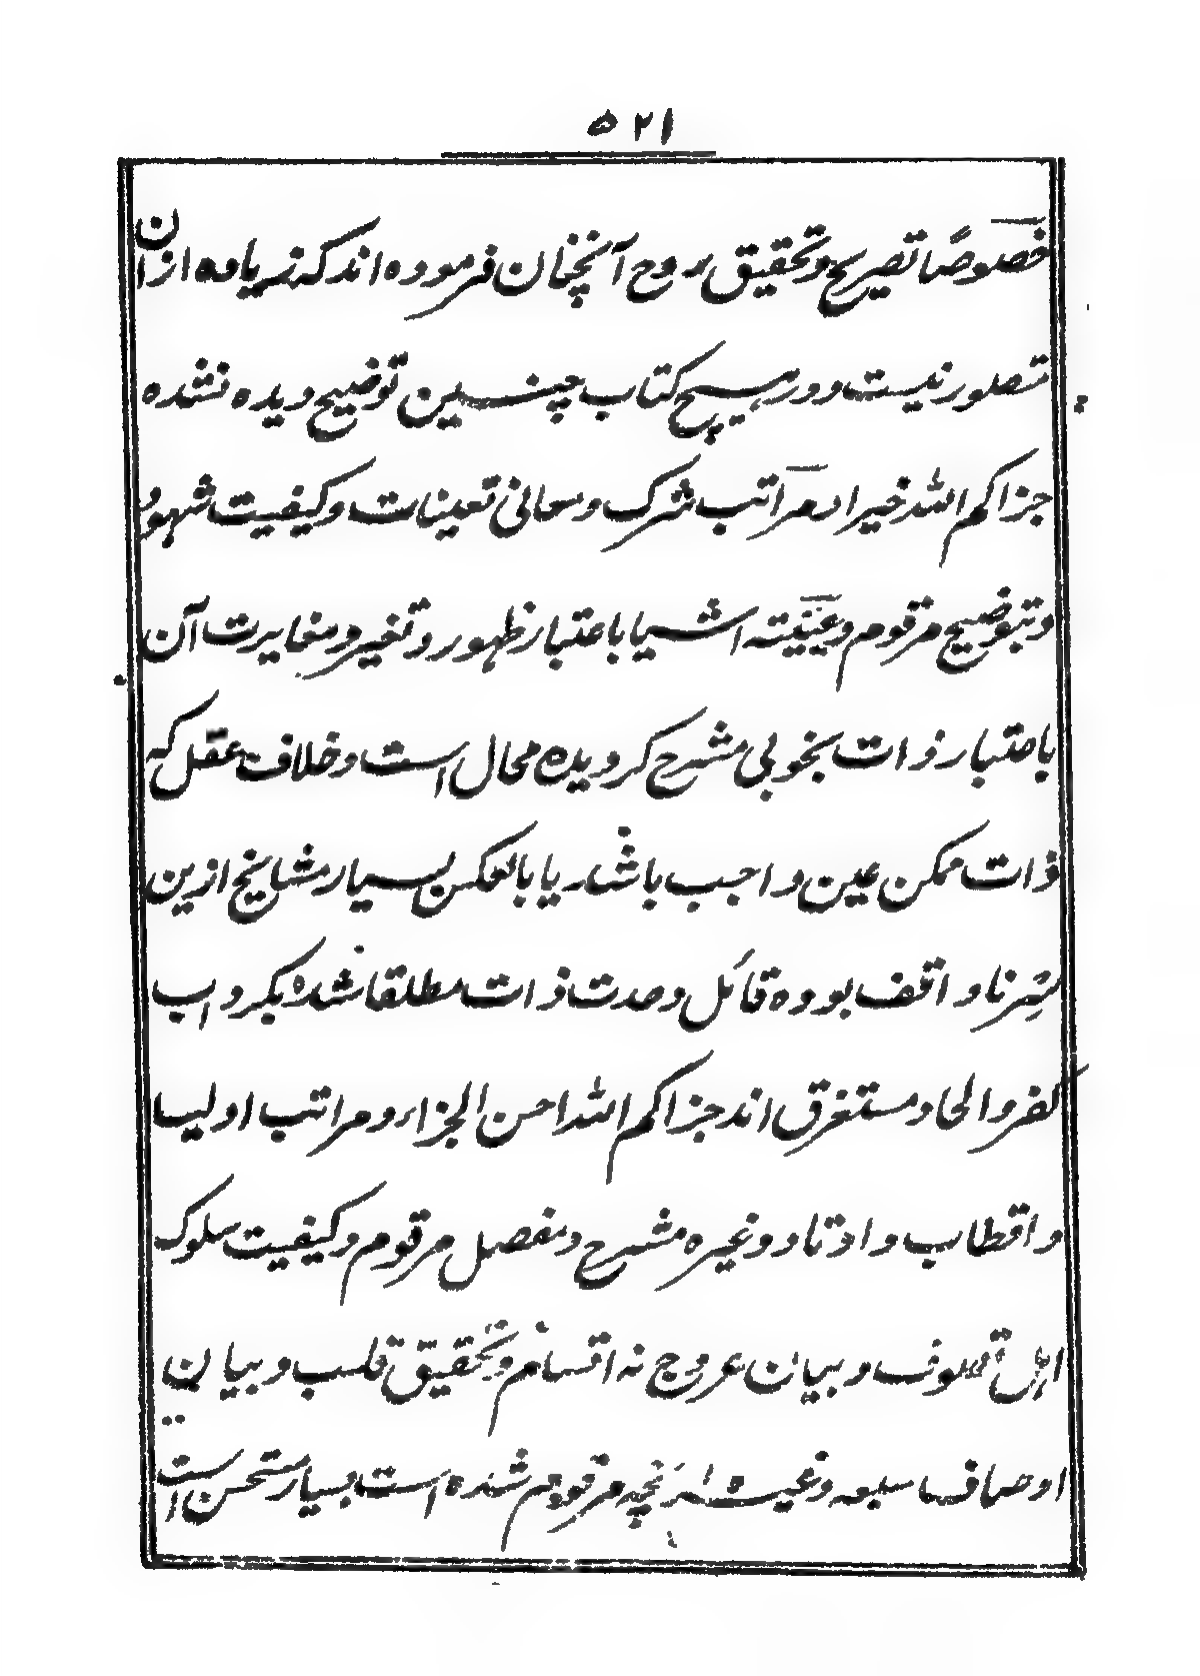 ۵۲۱
خصوصًا تصریح و تحقیق بروح آنچنان فرموده اند که زیاده ازان
متصور نیست و در هیچ کتاب چنین توضیح دیده نشده
جزاکم الله خیرا در مراتب شرک و معانی تعینات و کیفیت شهود
و بتوضیح مرقوم و عینیته اشیا باعتبار ظهور و تغیر و مغایرت آن
باعتبار ذوات بخوبی مشرح گردیده محال است و خلاف عقل که
ذات ممکن عین واجب باشد یا بالعکس بسیار مشایخ ازین
سر ناواقف بوده قائل وحدت ذوات مطلقا شده بگرداب
کفر و الحاد مستغرق اند جزاکم الله احسن الجزاء و مراتب اولیا
و اقطاب و اوتاد و غیره مشرح و مفصل مرقوم و کیفیت سلوک
اهل تصوف و بیان عروج نه اقسام و تحقیق قلب و بیان
اوصاف سبعه و غیره هرچه مرقوم شده است بسیار مستحسن است